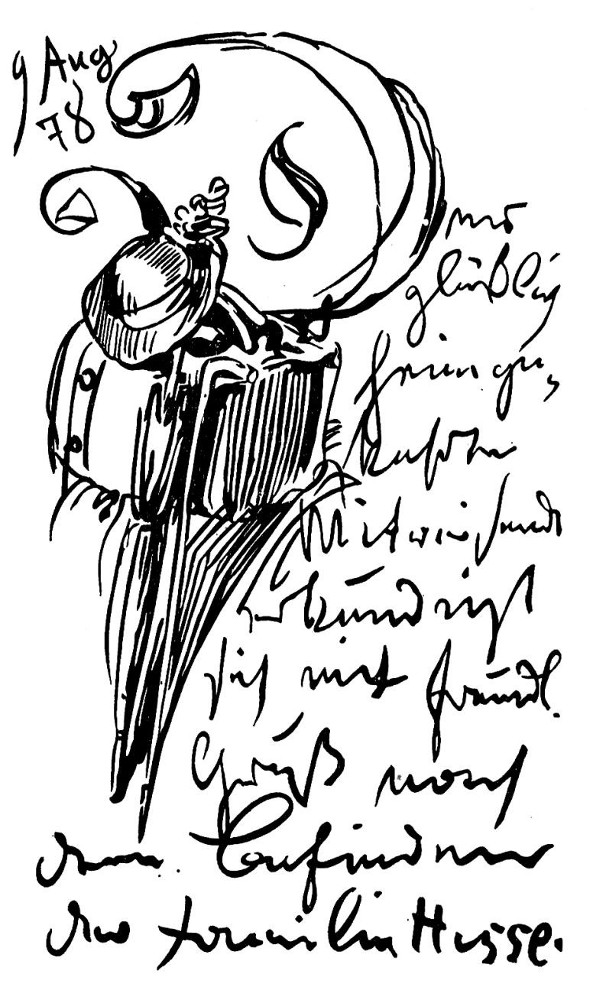 9 Aug
78
glücklich
Mitreisende
erkundigt
sich mit freundl.
Gruß nach
dem Befinden
der Familie Hesse.